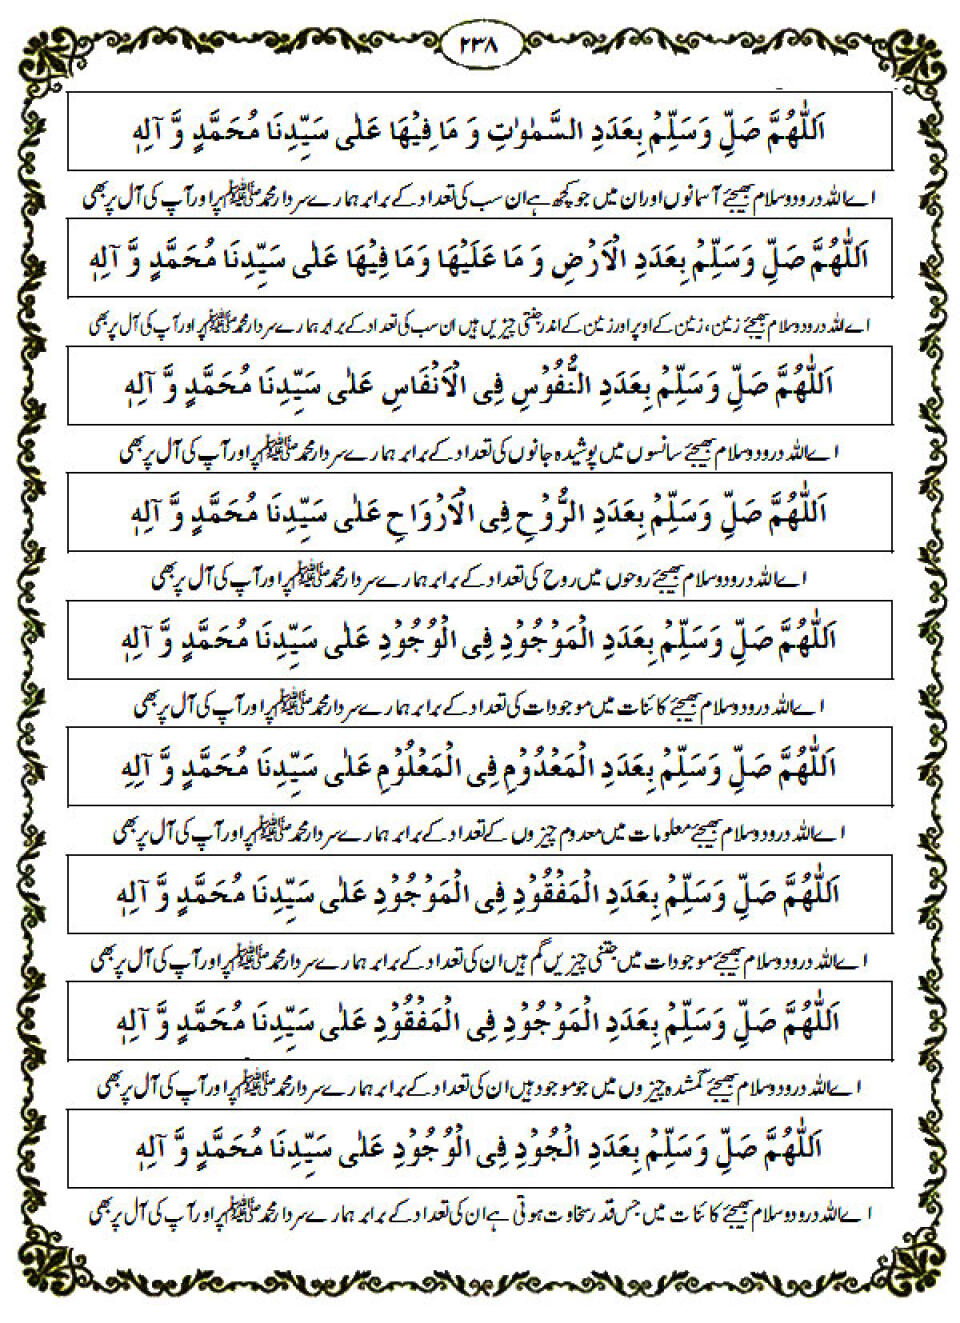 ۲۳۸
اَللّٰهُمَّ صَلِّ وَسَلِّمْ بِعَدَدِ السَّمٰوٰتِ وَ مَا فِيْهَا عَلٰى سَيِّدِنَا مُحَمَّدٍ وَّ آلِهٖ
اے اللہ درود وسلام بھیجئے آسمانوں اور ان میں جو کچھ ہے ان سب کی تعداد کے برابر ہمارے سردار محمد ﷺ پر اور آپ کی آل پر بھی
اَللّٰهُمَّ صَلِّ وَسَلِّمْ بِعَدَدِ الْاَرْضِ وَ مَا عَلَيْهَا وَمَا فِيْهَا عَلٰى سَيِّدِنَا مُحَمَّدٍ وَّ آلِهٖ
اے اللہ درود وسلام بھیجئے زمین، زمین کے اوپر اور زمین کے اندر جتنی چیزیں ہیں ان سب کی تعداد کے برابر ہمارے سردار محمد ﷺ پر اور آپ کی آل پر بھی
اَللّٰهُمَّ صَلِّ وَسَلِّمْ بِعَدَدِ النُّفُوْسِ فِى الْاَنْفَاسِ عَلٰى سَيِّدِنَا مُحَمَّدٍ وَّ آلِهٖ
اے اللہ درود وسلام بھیجئے سانسوں میں پوشیدہ جانوں کی تعداد کے برابر ہمارے سردار محمد ﷺ پر اور آپ کی آل پر بھی
اَللّٰهُمَّ صَلِّ وَسَلِّمْ بِعَدَدِ الرُّوْحِ فِى الْاَرْوَاحِ عَلٰى سَيِّدِنَا مُحَمَّدٍ وَّ آلِهٖ
اے اللہ درود وسلام بھیجئے روحوں میں روح کی تعداد کے برابر ہمارے سردار محمد ﷺ پر اور آپ کی آل پر بھی
اَللّٰهُمَّ صَلِّ وَسَلِّمْ بِعَدَدِ الْمَوْجُوْدِ فِى الْوُجُوْدِ عَلٰى سَيِّدِنَا مُحَمَّدٍ وَّ آلِهٖ
اے اللہ درود وسلام بھیجئے کائنات میں موجودات کی تعداد کے برابر ہمارے سردار محمد ﷺ پر اور آپ کی آل پر بھی
اَللّٰهُمَّ صَلِّ وَسَلِّمْ بِعَدَدِ الْمَعْدُوْمِ فِى الْمَعْلُوْمِ عَلٰى سَيِّدِنَا مُحَمَّدٍ وَّ آلِهِ
اے اللہ درود وسلام بھیجئے معلومات میں معدوم چیزوں کے تعداد کے برابر ہمارے سردار محمد ﷺ پر اور آپ کی آل پر بھی
اَللّٰهُمَّ صَلِّ وَسَلِّمْ بِعَدَدِ الْمَفْقُوْدِ فِى الْمَوْجُوْدِ عَلٰى سَيِّدِنَا مُحَمَّدٍ وَّ آلِهٖ
اے اللہ درود وسلام بھیجئے موجودات میں جتنی چیزیں گم ہیں ان کی تعداد کے برابر ہمارے سردار محمد ﷺ پر اور آپ کی آل پر بھی
اَللّٰهُمَّ صَلِّ وَسَلِّمْ بِعَدَدِ الْمَوْجُوْدِ فِى الْمَفْقُوْدِ عَلٰى سَيِّدِنَا مُحَمَّدٍ وَّ آلِهٖ
اے اللہ درود وسلام بھیجئے گمشدہ چیزوں میں جو موجود ہیں ان کی تعداد کے برابر ہمارے سردار محمد ﷺ پر اور آپ کی آل پر بھی
اَللّٰهُمَّ صَلِّ وَسَلِّمْ بِعَدَدِ الْجُوْدِ فِى الْوُجُوْدِ عَلٰى سَيِّدِنَا مُحَمَّدٍ وَّ آلِهٖ
اے اللہ درود وسلام بھیجئے کائنات میں جس قدر سخاوت ہوتی ہے ان کی تعداد کے برابر ہمارے سردار محمد ﷺ پر اور آپ کی آل پر بھی